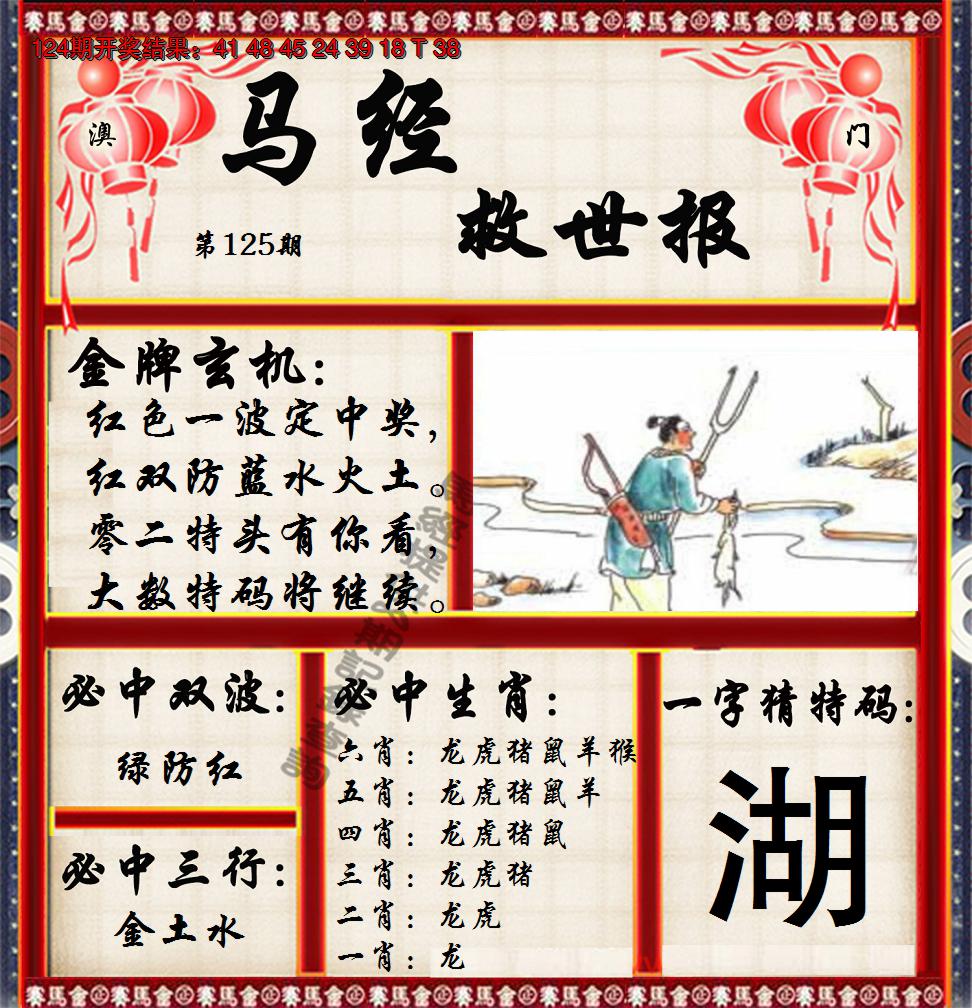 賽馬會
124期开奖结果：41 48 45 24 39 18 T 38
澳 门
马经
救世报
第125期
金牌玄机：
红色一波定中奖，
红双防蓝水火土。
零二特头有你看，
大数特码将继续。
必中双波：
绿防红
必中三行：
金土水
必中生肖：
六肖：龙虎猪鼠羊猴
五肖：龙虎猪鼠羊
四肖：龙虎猪鼠
三肖：龙虎猪
二肖：龙虎
一肖：龙
一字猜特码：
湖
賽馬會